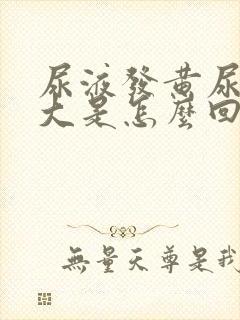 尿液發黃尿
大是怎麼回
無量天尊是我